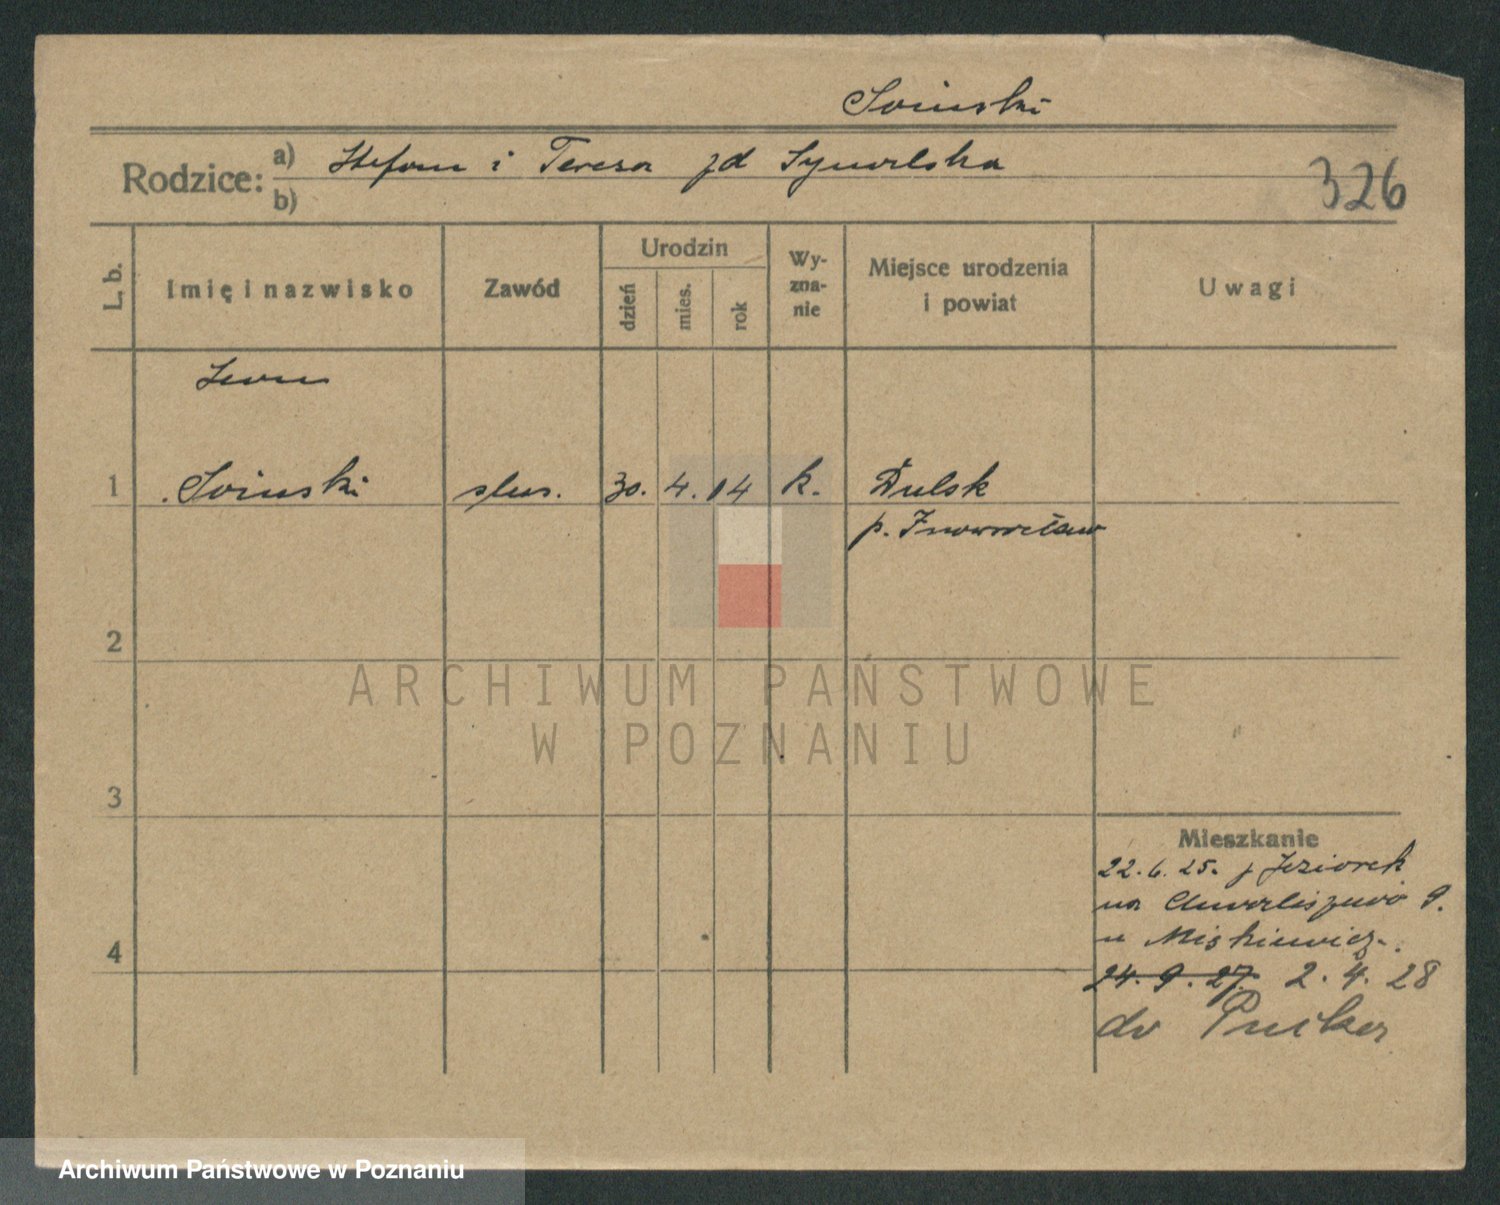 Soinski
Rodzice: a) Stefan i Teresa zd
b)
326
L. b.
Imię i nazwisko
Zawód
Urodzin
dzień
mies.
rok
Wy-
zna-
nie
Miejsce urodzenia
i powiat
Uwagi
1
Soinski
slus.
30. 4. 14
k.
Dulsk
p. Inowrocław
2
3
4
Mieszkanie
22. 6. 25. z Jeziorek
na Chwaliszewo 9.
u
24. 9. 27. 2. 4. 28
do Pucka
ARCHIWUM PAŃSTWOWE
W POZNANIU
Archiwum Państwowe w Poznaniu